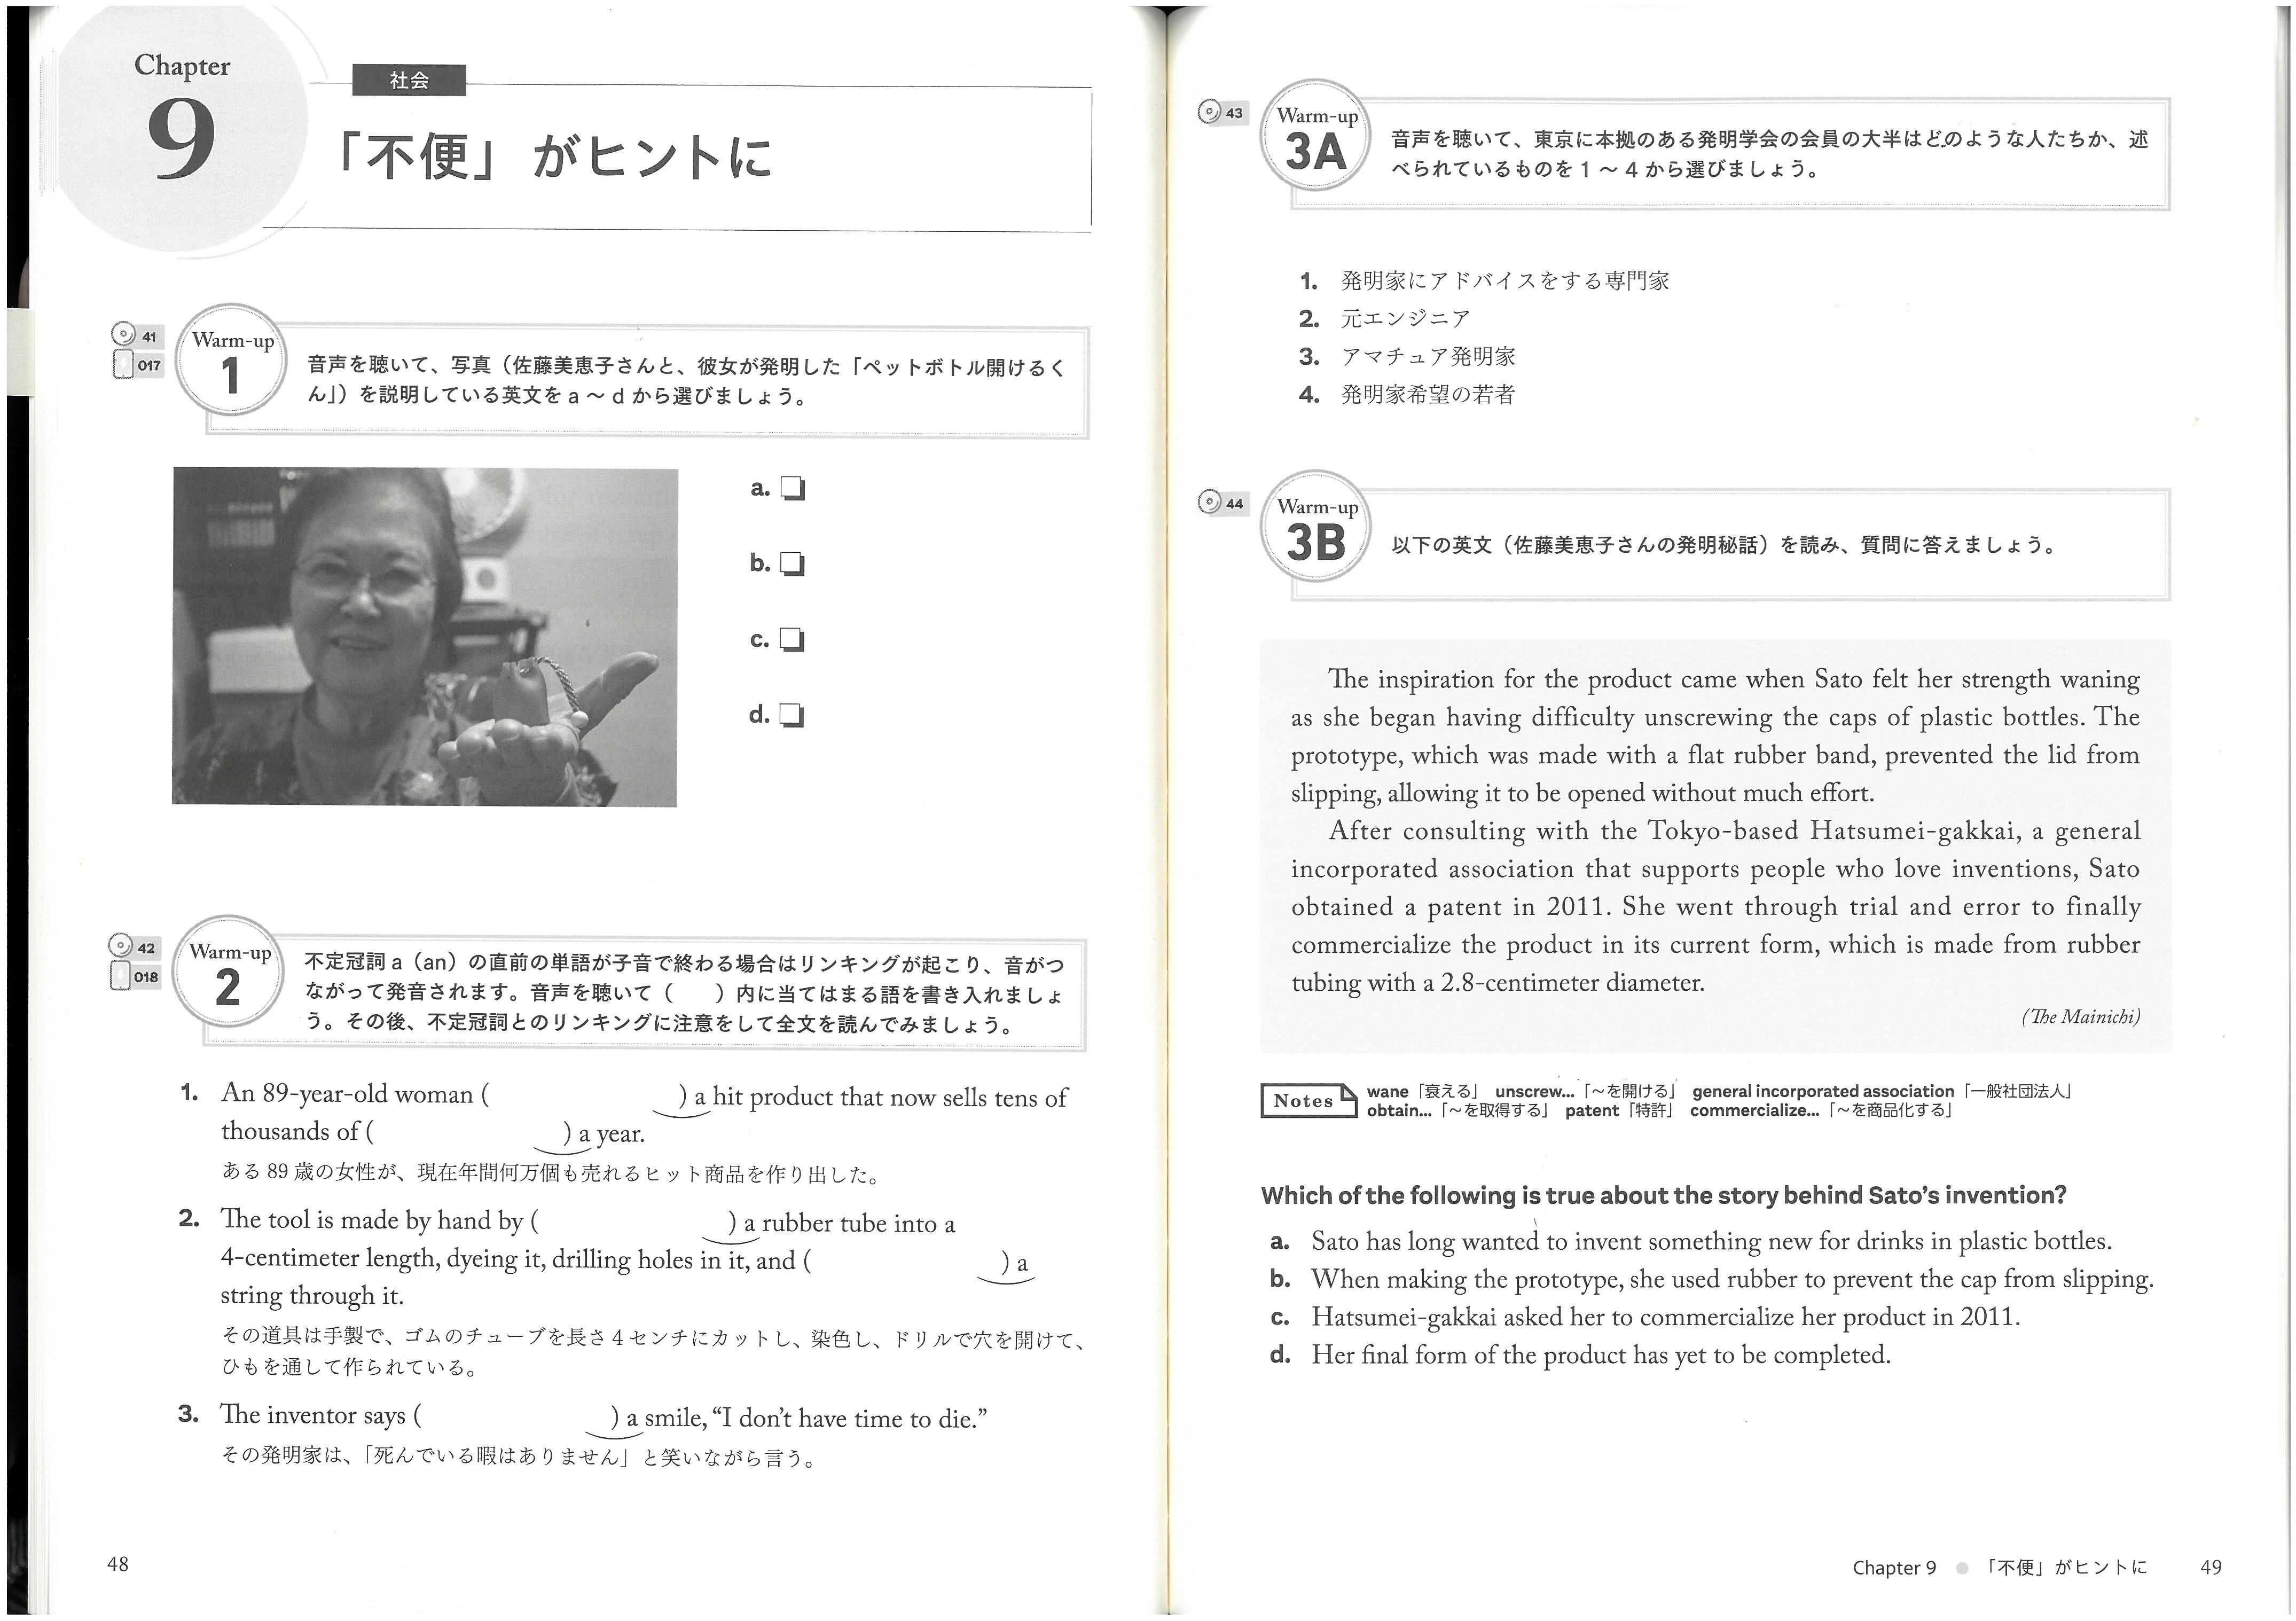 Chapter
9
社会
「不便」がヒントに
41
017
Warm-up
1
音声を聴いて、写真（佐藤美恵子さんと、彼女が発明した「ペットボトル開けるく
ん」）を説明している英文を a ～ d から選びましょう。
a.
b.
c.
d.
42
018
Warm-up
2
不定冠詞 a（an）の直前の単語が子音で終わる場合はリンキングが起こり、音がつ
ながって発音されます。音声を聴いて（　　）内に当てはまる語を書き入れましょ
う。その後、不定冠詞とのリンキングに注意をして全文を読んでみましょう。
1. An 89-year-old woman (　　　) a hit product that now sells tens of
thousands of (　　　) a year.
ある 89 歳の女性が、現在年間何万個も売れるヒット商品を作り出した。
2. The tool is made by hand by (　　　) a rubber tube into a
4-centimeter length, dyeing it, drilling holes in it, and (　　　) a
string through it.
その道具は手製で、ゴムのチューブを長さ 4 センチにカットし、染色し、ドリルで穴を開けて、
ひもを通して作られている。
3. The inventor says (　　　) a smile, “I don’t have time to die.”
その発明家は、「死んでいる暇はありません」と笑いながら言う。
48
43
Warm-up
3A
音声を聴いて、東京に本拠のある発明学会の会員の大半はどのような人たちか、述
べられているものを 1 ～ 4 から選びましょう。
1. 発明家にアドバイスをする専門家
2. 元エンジニア
3. アマチュア発明家
4. 発明家希望の若者
44
Warm-up
3B
以下の英文（佐藤美恵子さんの発明秘話）を読み、質問に答えましょう。
The inspiration for the product came when Sato felt her strength waning
as she began having difficulty unscrewing the caps of plastic bottles. The
prototype, which was made with a flat rubber band, prevented the lid from
slipping, allowing it to be opened without much effort.
After consulting with the Tokyo-based Hatsumei-gakkai, a general
incorporated association that supports people who love inventions, Sato
obtained a patent in 2011. She went through trial and error to finally
commercialize the product in its current form, which is made from rubber
tubing with a 2.8-centimeter diameter.
(The Mainichi)
Notes
wane「衰える」 unscrew...「～を開ける」 general incorporated association「一般社団法人」
obtain...「～を取得する」 patent「特許」 commercialize...「～を商品化する」
Which of the following is true about the story behind Sato’s invention?
a. Sato has long wanted to invent something new for drinks in plastic bottles.
b. When making the prototype, she used rubber to prevent the cap from slipping.
c. Hatsumei-gakkai asked her to commercialize her product in 2011.
d. Her final form of the product has yet to be completed.
Chapter 9 ● 「不便」がヒントに 49